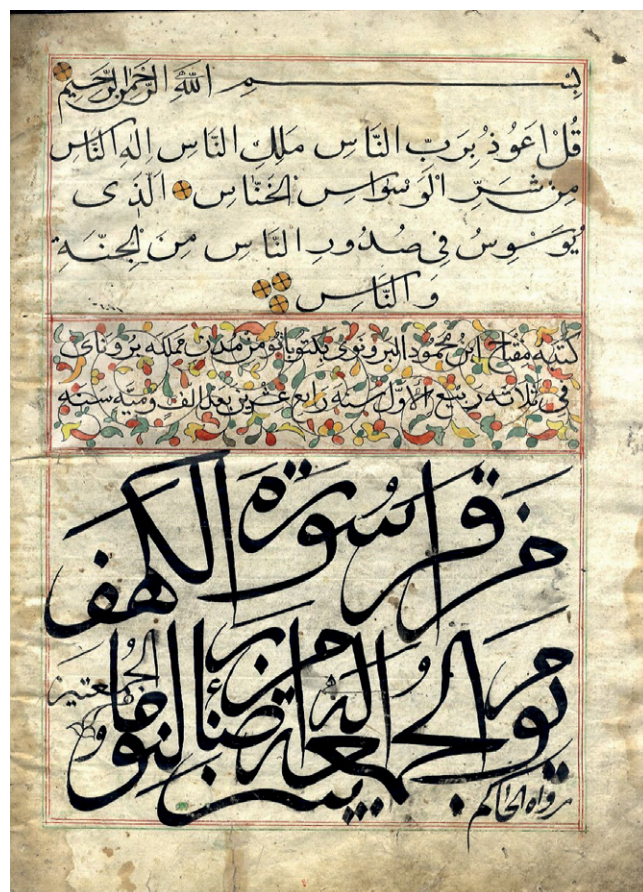 بِسْمِ اللّٰهِ الرَّحْمٰنِ الرَّحِيمِ
قُلْ اَعُوذُ بِرَبِّ النَّاسِ مَلِكِ النَّاسِ اِلٰهِ النَّاسِ
مِنْ شَرِّ الْوَسْوَاسِ الْخَنَّاسِ الَّذِى
يُوَسْوِسُ فِى صُدُورِ النَّاسِ مِنَ الْجِنَّةِ
وَالنَّاسِ
كتبه مفتاح ابن محمود البرونوى من مدن مملكه بروناى
فى ثلاثه ربيع الاوّل سنه رابع عشرين بعد الف وميّه سنه
من قرا سُورَة الكهف
يوم الجمعة اضاء له من النور ما بين الجمعتين
رواه الحاكم